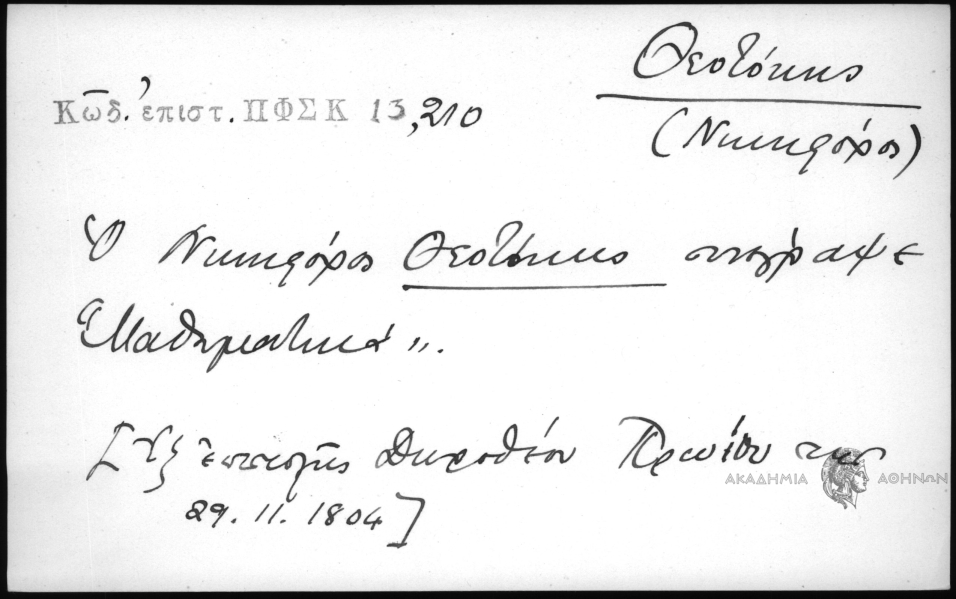 Θεοτόκης
(Νικηφόρος)
Κῶδ. ἐπιστ. ΠΦΣΚ 13,210
Ὁ Νικηφόρος Θεοτόκης συνέγραψε
"Μαθηματικά".
[Ἐξ ἐπιστολῆς Δωροθέου Πρωΐου της
29.11.1804]
ΑΚΑΔΗΜΙΑ ΑΘΗΝΩΝ